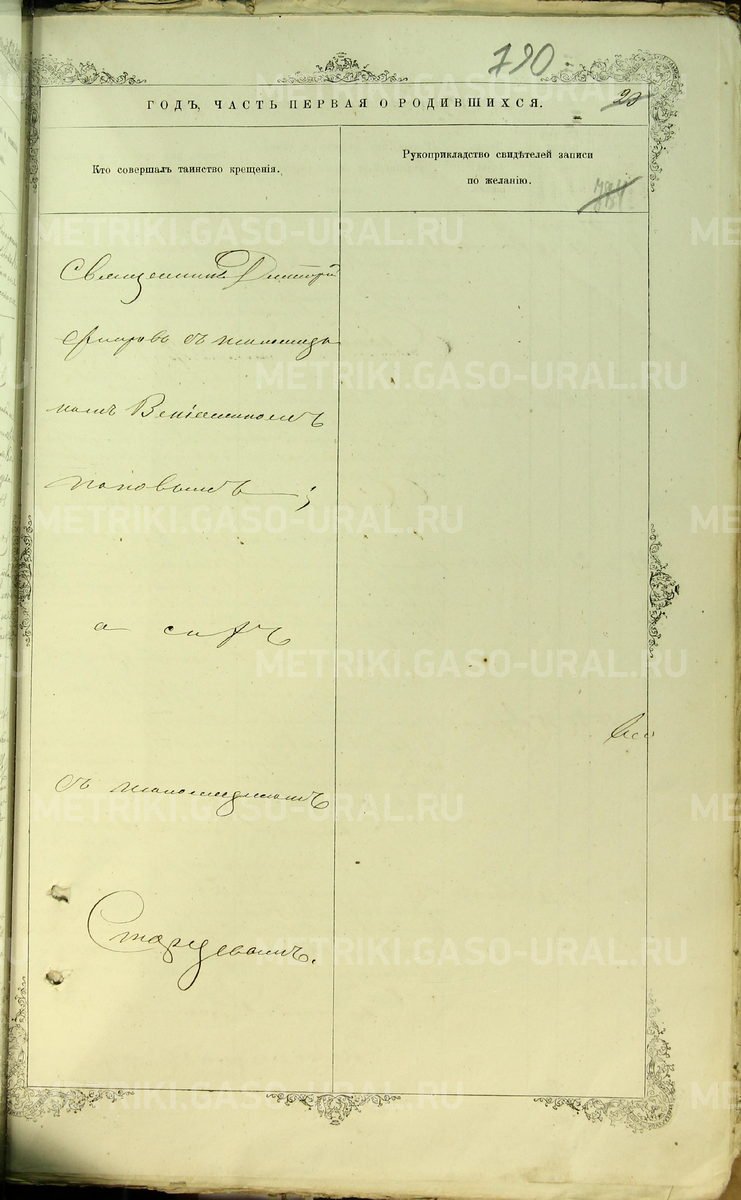 790
ГОДЪ, ЧАСТЬ ПЕРВАЯ О РОДИВШИХСЯ.
Кто совершалъ таинство крещенія.
Рукоприкладство свидѣтелей записи
по желанію.
Священникъ Дмитрій
съ псаломщи
комъ Веніаминомъ
Поповымъ;
а
съ псаломщикомъ
Старцевымъ.
METRIKI.GASO-URAL.RU